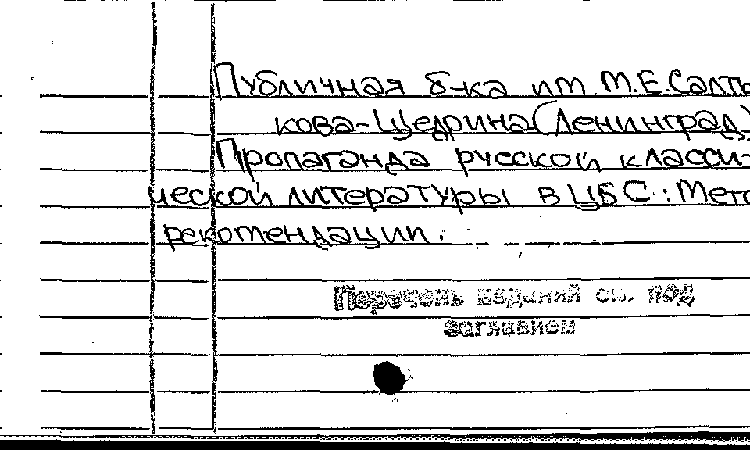 Публичная б-ка им. М.Е.Салты
кова-Щедрина (Ленинград)
Пропаганда русской класси-
ческой литературы в ЦБС: Мето
рекомендации.
Перечень изданий см. под
заглавием